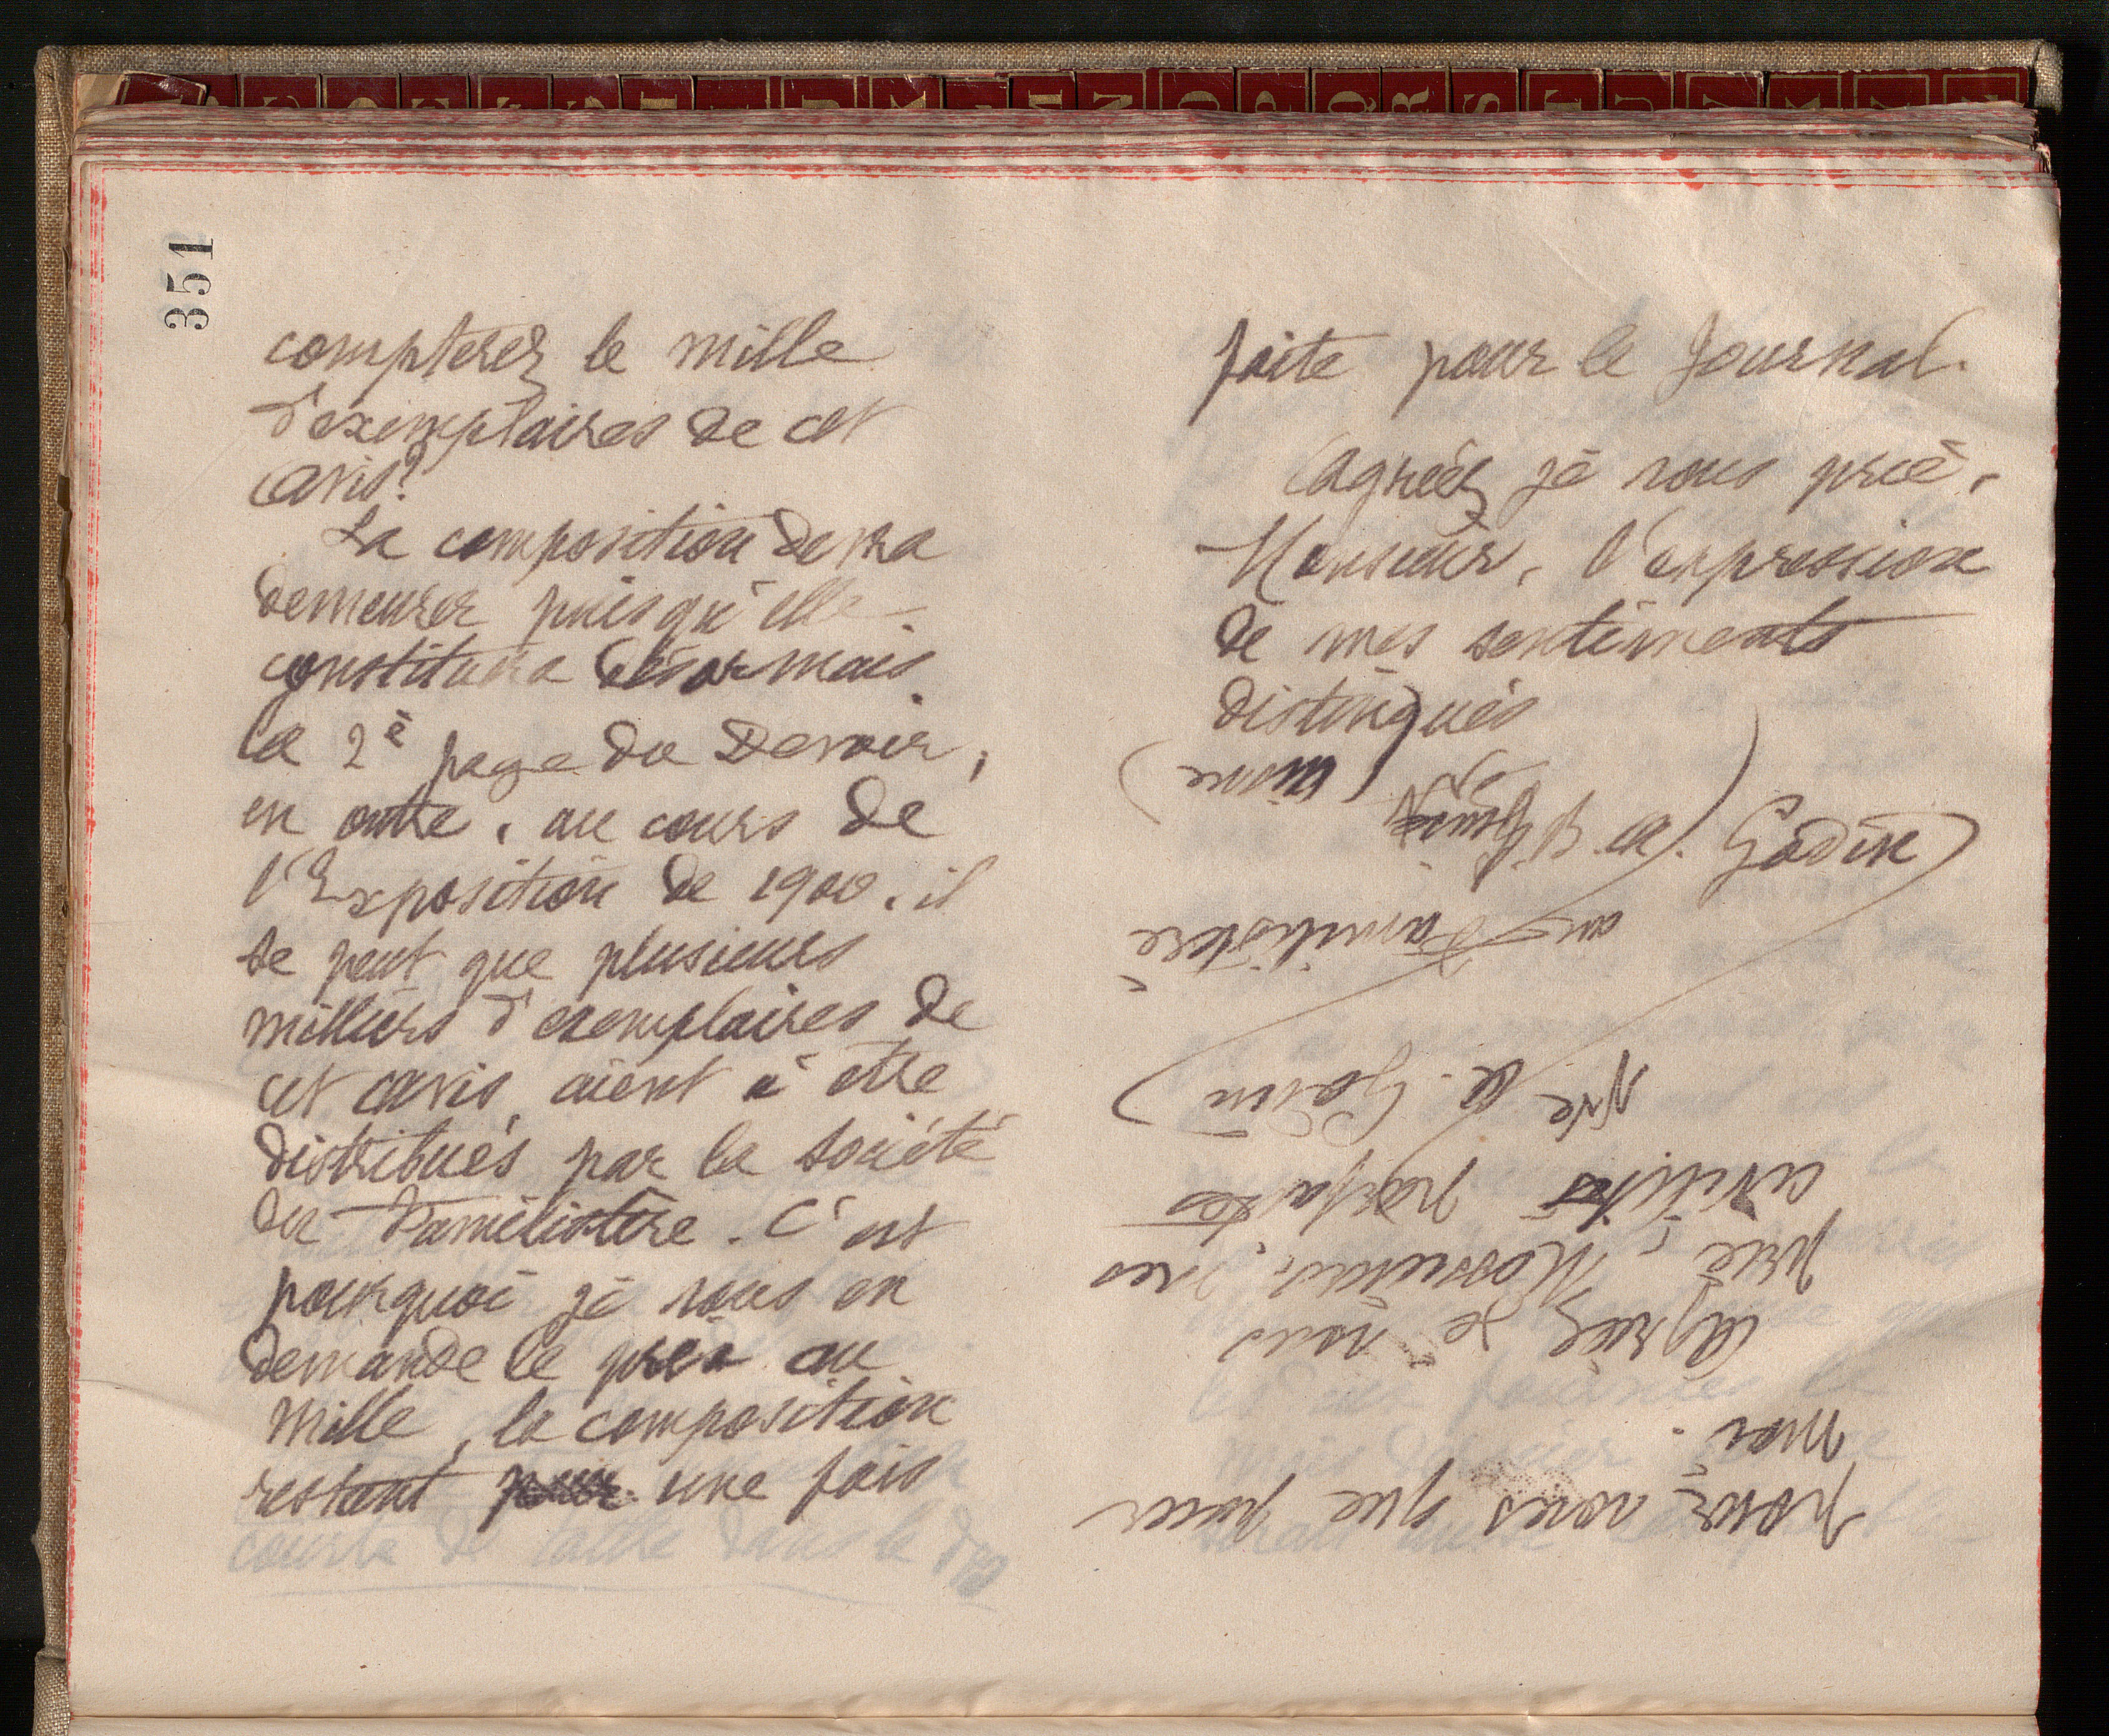 351
compterez le mille
d'exemplaires de cet
avis?
La composition devra
demeurer puisqu'elle
constituera désormais
la 2e page du Devoir,
en outre, au cours de
l'Exposition de 1900, il
se peut que plusieurs
milliers d'exemplaires de
cet avis, aient à être
distribués par la société
du Familistère. C'est
pourquoi je vous en
demande le prix au
mille, la composition
restant une fois
faite pour le Journal.
Agréez je vous prie,
Monsieur, l'expression
de mes sentiments
distingués
Godin
pour vous que pour
moi.
Agréez je vous
prie, Monsieur, mes
civilités parfaites
Vve A. Godin
au Familistère